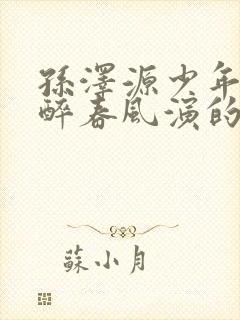 孫澤源少年
醉春風演的
蘇小月